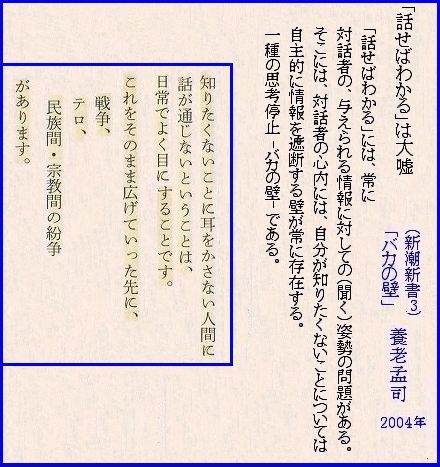 「話せばわかる」は大嘘
「話せばわかる」には、常に
対話者の、与えられる情報に対しての（聞く）姿勢の問題がある。
そこには、対話者の心内には、自分が知りたくないことについては
自主的に情報を遮断する壁が常に存在する。
一種の思考停止 －バカの壁－ である。
（新潮新書3）
「バカの壁」 養老孟司
2004年
知りたくないことに耳をかさない人間に
話が通じないということは、
日常でよく目にすることです。
これをそのまま広げていった先に、
戦争、
テロ、
民族間・宗教間の紛争
があります。